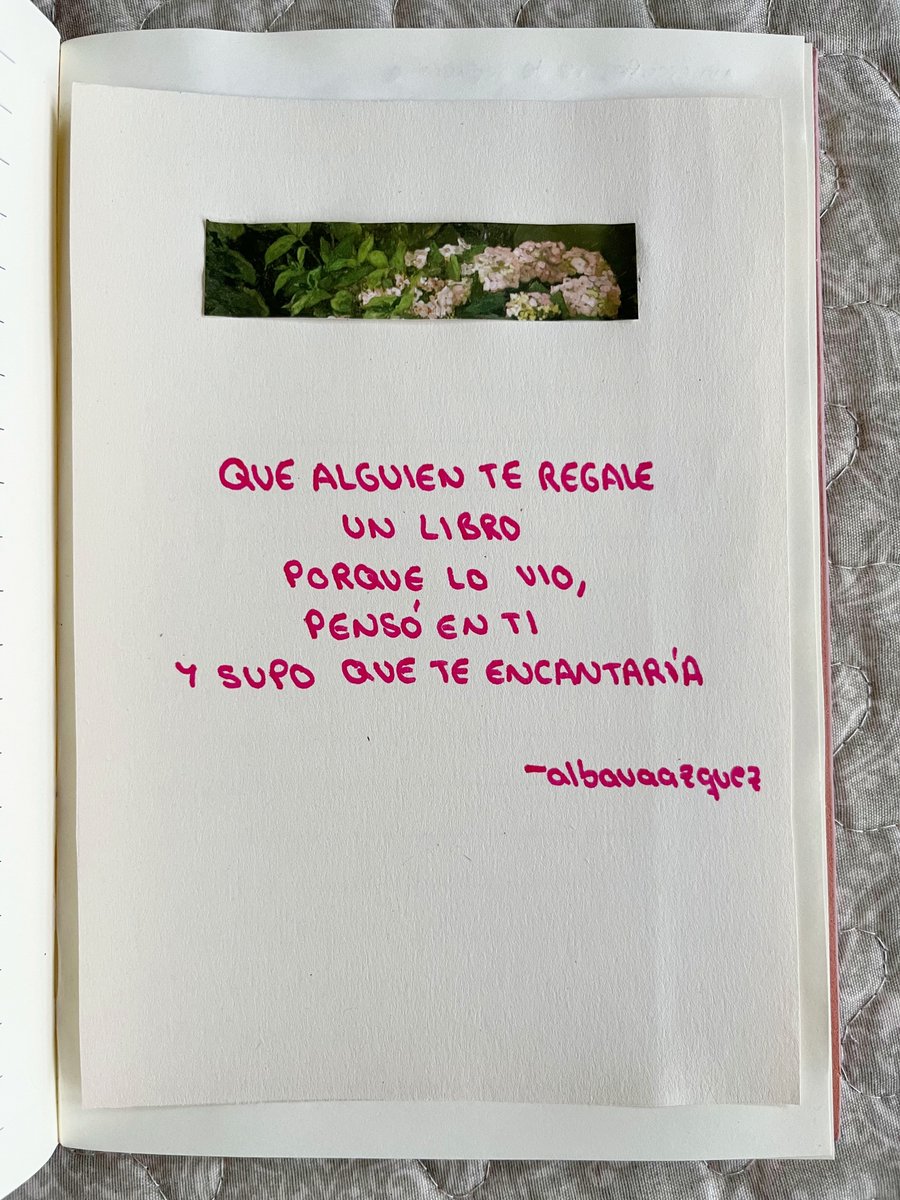 QUE ALGUIEN TE REGALE
UN LIBRO
PORQUE LO VIO,
PENSÓ EN TI
Y SUPO QUE TE ENCANTARÍA
-albavaazquez